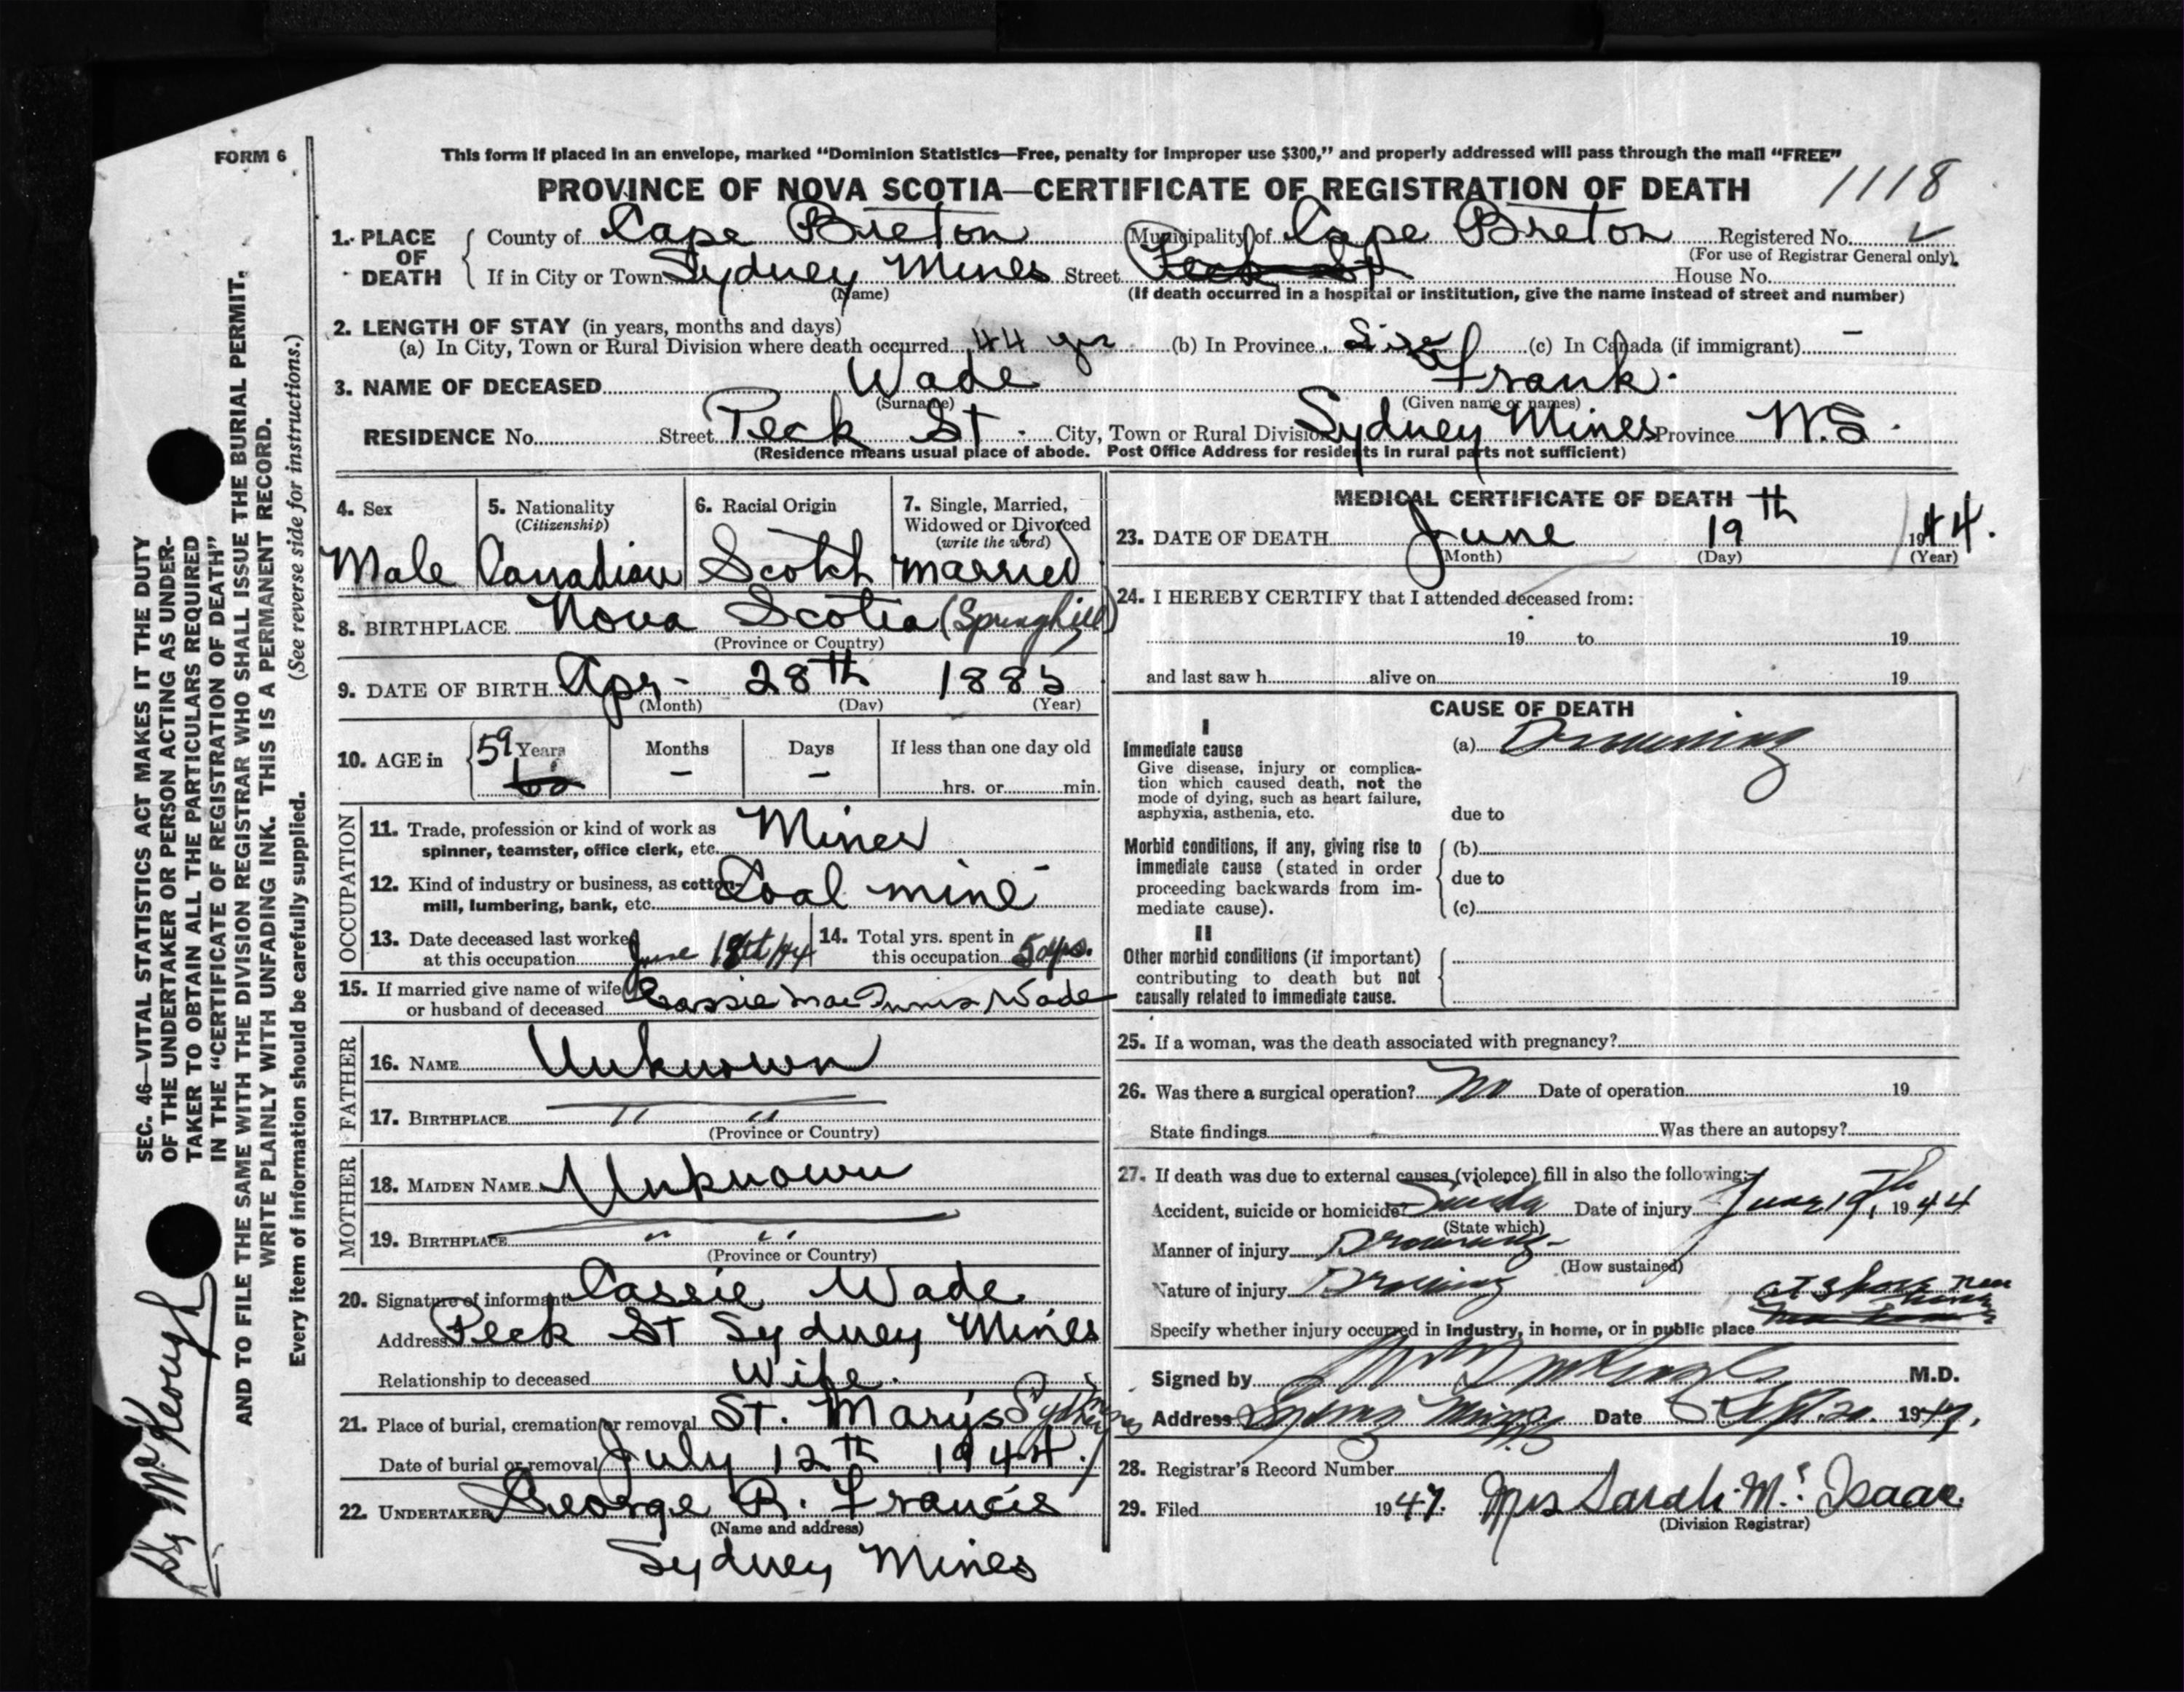 FORM 6
This form if placed in an envelope, marked "Dominion Statistics—Free, penalty for improper use $300," and properly addressed will pass through the mail "FREE"
PROVINCE OF NOVA SCOTIA—CERTIFICATE OF REGISTRATION OF DEATH 1118
1. PLACE OF DEATH County of Cape Breton Municipality of Cape Breton Registered No.
(For use of Registrar General only).
If in City or Town Sydney Mines Street Peck St House No.
(Name) (If death occurred in a hospital or institution, give the name instead of street and number)
2. LENGTH OF STAY (in years, months and days)
(a) In City, Town or Rural Division where death occurred 44 yrs (b) In Province Life (c) In Canada (if immigrant) —
3. NAME OF DECEASED Wade Frank.
(Surname) (Given name or names)
RESIDENCE No. Street Peck St. City, Town or Rural Division Sydney Mines Province N.S.
(Residence means usual place of abode. Post Office Address for residents in rural parts not sufficient)
4. Sex 5. Nationality (Citizenship) 6. Racial Origin 7. Single, Married, Widowed or Divorced (write the word)
Male Canadian Scotch married
8. BIRTHPLACE Nova Scotia (Springhill)
(Province or Country)
9. DATE OF BIRTH Apr - 28th 1885
(Month) (Day) (Year)
10. AGE in 59 Years Months Days If less than one day old
— — hrs. or min.
OCCUPATION
11. Trade, profession or kind of work as spinner, teamster, office clerk, etc. Miner
12. Kind of industry or business, as cotton-mill, lumbering, bank, etc. Coal mine
13. Date deceased last worked at this occupation June 18th/44 14. Total yrs. spent in this occupation 50 yrs.
15. If married give name of wife or husband of deceased Cassie MacInnis Wade
FATHER
16. NAME Unknown
17. BIRTHPLACE " "
(Province or Country)
MOTHER
18. MAIDEN NAME Unknown
19. BIRTHPLACE " "
(Province or Country)
20. Signature of informant Cassie Wade
Address Peck St Sydney Mines
Relationship to deceased Wife.
21. Place of burial, cremation or removal St. Marys Sydney Mines
Date of burial or removal July 12th 1944.
22. UNDERTAKER George R. Francis
(Name and address)
Sydney Mines
MEDICAL CERTIFICATE OF DEATH
23. DATE OF DEATH June 19th 1944.
(Month) (Day) (Year)
24. I HEREBY CERTIFY that I attended deceased from:
19 to 19
and last saw h alive on 19
CAUSE OF DEATH
I
Immediate cause (a) Drowning
Give disease, injury or complication which caused death, not the mode of dying, such as heart failure, asphyxia, asthenia, etc.
due to
Morbid conditions, if any, giving rise to immediate cause (stated in order proceeding backwards from immediate cause).
(b)
due to
(c)
II
Other morbid conditions (if important) contributing to death but not causally related to immediate cause.
25. If a woman, was the death associated with pregnancy?
26. Was there a surgical operation? No Date of operation 19
State findings Was there an autopsy?
27. If death was due to external causes (violence) fill in also the following:
Accident, suicide or homicide Suicide Date of injury June 19th, 1944
(State which)
Manner of injury Drowning
(How sustained)
Nature of injury Drowning
at shore near home
Specify whether injury occurred in industry, in home, or in public place
Signed by M.D.
Address Sydney Mines Date Sept. 20. 1947.
28. Registrar's Record Number
29. Filed 1947. Mrs Sarah Mc Isaac
(Division Registrar)
SEC. 46—VITAL STATISTICS ACT MAKES IT THE DUTY
OF THE UNDERTAKER OR PERSON ACTING AS UNDER-
TAKER TO OBTAIN ALL THE PARTICULARS REQUIRED
IN THE "CERTIFICATE OF REGISTRATION OF DEATH"
AND TO FILE THE SAME WITH THE DIVISION REGISTRAR WHO SHALL ISSUE THE BURIAL PERMIT.
WRITE PLAINLY WITH UNFADING INK. THIS IS A PERMANENT RECORD.
Every item of information should be carefully supplied. (See reverse side for instructions.)
Mc Keough